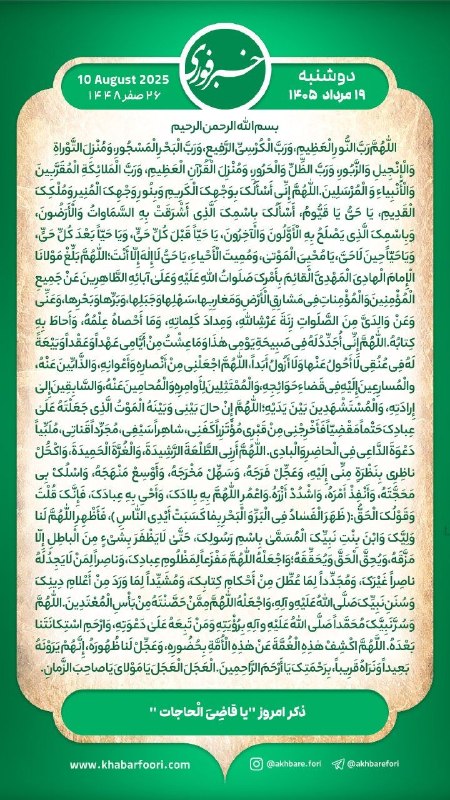 خبرفوری
دوشنبه
۱۹ مرداد ۱۴۰۵
10 August 2025
۲۶ صفر ۱۴۴۸
بسم الله الرحمن الرحیم
اَللّٰهُمَّ رَبَّ النُّورِ الْعَظِیمِ، وَرَبَّ الْکُرْسِیِّ الرَّفِیعِ، وَرَبَّ الْبَحْرِ الْمَسْجُورِ، وَمُنْزِلَ التَّوْراةِ
وَالْإِنْجِیلِ وَالزَّبُورِ، وَرَبَّ الظِّلِّ وَالْحَرُورِ، وَمُنْزِلَ الْقُرْآنِ الْعَظِیمِ، وَرَبَّ الْمَلائِکَةِ الْمُقَرَّبِینَ
وَالْأَنْبِیاءِ وَالْمُرْسَلِینَ. اللّٰهُمَّ إِنِّی أَسْأَلُکَ بِوَجْهِکَ الْکَرِیمِ وَبِنُورِ وَجْهِکَ الْمُنِیرِ وَمُلْکِکَ
الْقَدِیمِ، یَا حَیُّ یَا قَیُّومُ، أَسْأَلُکَ بِاسْمِکَ الَّذِی أَشْرَقَتْ بِهِ السَّمَاوَاتُ وَالْأَرَضُونَ،
وَبِاسْمِکَ الَّذِی یَصْلَحُ بِهِ الْأَوَّلُونَ وَالْآخِرُونَ، یَا حَیّاً قَبْلَ کُلِّ حَیٍّ، وَیَا حَیّاً بَعْدَ کُلِّ حَیٍّ،
وَیَا حَیّاً حِینَ لَاحَیَّ، یَا مُحْیِیَ الْمَوْتیٰ، وَمُمِیتَ الْأَحْیاءِ، یَا حَیُّ لَاإِلٰهَ إِلّا أَنْتَ؛ اللّٰهُمَّ بَلِّغْ مَوْلانَا
الْإِمامَ الْهادِیَ الْمَهْدِیَّ الْقائِمَ بِأَمْرِکَ صَلَواتُ اللّٰهِ عَلَیْهِ وَعَلَیٰ آبائِهِ الطَّاهِرِینَ عَنْ جَمِیعِ
الْمُؤْمِنِینَ وَالْمُؤْمِناتِ فِی مَشارِقِ الْأَرْضِ وَمَغارِبِها، سَهْلِها وَجَبَلِها، وَبَرِّها وَبَحْرِها، وَعَنِّی
وَعَنْ وَالِدَیَّ مِنَ الصَّلَواتِ زِنَةَ عَرْشِاللّٰهِ، وَمِدادَ کَلِماتِهِ، وَمَا أَحْصاهُ عِلْمُهُ، وَأَحاطَ بِهِ
کِتابُهُ. اللّٰهُمَّ إِنِّی أُجَدِّدُ لَهُ فِی صَبِیحَةِ یَوْمِی هٰذَا وَمَا عِشْتُ مِنْ أَیَّامِی عَهْداً وَعَقْداً وَبَیْعَةً
لَهُ فِی عُنُقِی لَا أَحُولُ عَنْها وَلَا أَزُولُ أَبَداً. اللّٰهُمَّ اجْعَلْنِی مِنْ أَنْصارِهِ وَأَعْوانِهِ، وَالذَّابِّینَ عَنْهُ،
وَالْمُسارِعِینَ إِلَیْهِ فِی قَضاءِ حَوَائِجِهِ، وَالْمُمْتَثِلِینَ لِأَوامِرِهِ وَالْمُحامِینَ عَنْهُ، وَالسَّابِقِینَ إِلیٰ
إِرادَتِهِ، وَالْمُسْتَشْهَدِینَ بَیْنَ یَدَیْهِ؛ اللّٰهُمَّ إِنْ حالَ بَیْنِی وَبَیْنَهُ الْمَوْتُ الَّذِی جَعَلْتَهُ عَلَیٰ
عِبادِکَ حَتْماً مَقْضِیّاً فَأَخْرِجْنِی مِنْ قَبْرِی مُؤْتَزِراً کَفَنِی، شاهِراً سَیْفِی، مُجَرِّداً قَناتِی، مُلَبِّیاً
دَعْوَةَ الدَّاعِی فِی الْحاضِرِ وَالْبادِی. اللّٰهُمَّ أَرِنِی الطَّلْعَةَ الرَّشِیدَةَ، وَالْغُرَّةَ الْحَمِیدَةَ، وَاکْحُلْ
ناظِرِی بِنَظْرَةٍ مِنِّی إِلَیْهِ، وَعَجِّلْ فَرَجَهُ، وَسَهِّلْ مَخْرَجَهُ، وَأَوْسِعْ مَنْهَجَهُ، وَاسْلُکْ بِی
مَحَجَّتَهُ، وَأَنْفِذْ أَمْرَهُ، وَاشْدُدْ أَزْرَهُ، وَاعْمُرِ اللّٰهُمَّ بِهِ بِلادَکَ، وَأَحْیِ بِهِ عِبادَکَ، فَإِنَّکَ قُلْتَ
وَقَوْلُکَ الْحَقُّ: ﴿ظَهَرَ الْفَسَادُ فِی الْبَرِّ وَالْبَحْرِ بِمَا کَسَبَتْ أَیْدِی النَّاسِ﴾، فَأَظْهِرِ اللّٰهُمَّ لَنا
وَلِیَّکَ وَابْنَ بِنْتِ نَبِیِّکَ الْمُسَمَّیٰ بِاسْمِ رَسُولِکَ، حَتَّیٰ لَا یَظْفَرَ بِشَیْءٍ مِنَ الْباطِلِ إِلّا
مَزَّقَهُ، وَیُحِقَّ الْحَقَّ وَیُحَقِّقَهُ؛ وَاجْعَلْهُ اللّٰهُمَّ مَفْزَعاً لِمَظْلُومِ عِبادِکَ، وَناصِراً لِمَنْ لَایَجِدُ لَهُ
ناصِراً غَیْرَکَ، وَمُجَدِّداً لِمَا عُطِّلَ مِنْ أَحْکامِ کِتابِکَ، وَمُشَیِّداً لِمَا وَرَدَ مِنْ أَعْلامِ دِینِکَ
وَسُنَنِ نَبِیِّکَ صَلَّی اللّٰهُ عَلَیْهِ وَآلِهِ، وَاجْعَلْهُ اللّٰهُمَّ مِمَّنْ حَصَّنْتَهُ مِنْ بَأْسِ الْمُعْتَدِینَ. اللّٰهُمَّ
وَسُرَّ نَبِیَّکَ مُحَمَّداً صَلَّی اللّٰهُ عَلَیْهِ وَآلِهِ بِرُؤْیَتِهِ وَمَنْ تَبِعَهُ عَلَیٰ دَعْوَتِهِ، وَارْحَمِ اسْتِکانَتَنا
بَعْدَهُ. اللّٰهُمَّ اکْشِفْ هٰذِهِ الْغُمَّةَ عَنْ هٰذِهِ الْأُمَّةِ بِحُضُورِهِ، وَعَجِّلْ لَنا ظُهُورَهُ، إِنَّهُمْ یَرَوْنَهُ
بَعِیداً وَنَرَاهُ قَرِیباً، بِرَحْمَتِکَ یَا أَرْحَمَ الرَّاحِمِینَ. الْعَجَلَ الْعَجَلَ یَا مَوْلایَ یَا صاحِبَ الزَّمانِ.
ذکر امروز "یا قاضِیَ الْحاجات"
www.khabarfoori.com
@akhbare.fori
@akhbarefori